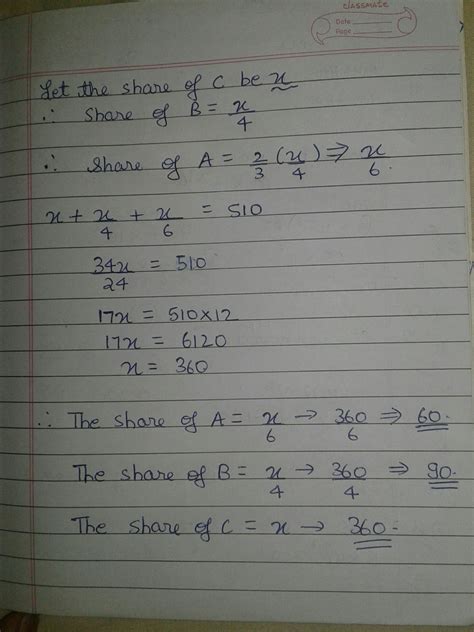 classmate
Date
Page
Let the share of C be x
∴ Share of B = x/4
∴ Share of A = 2/3 (x/4) ⇒ x/6.
x + x/4 + x/6 = 510
34x/24 = 510
17x = 510×12
17x = 6120
x = 360
∴ The share of A = x/6 → 360/6 ⇒ 60.
The share of B = x/4 → 360/4 ⇒ 90.
The share of C = x → 360.